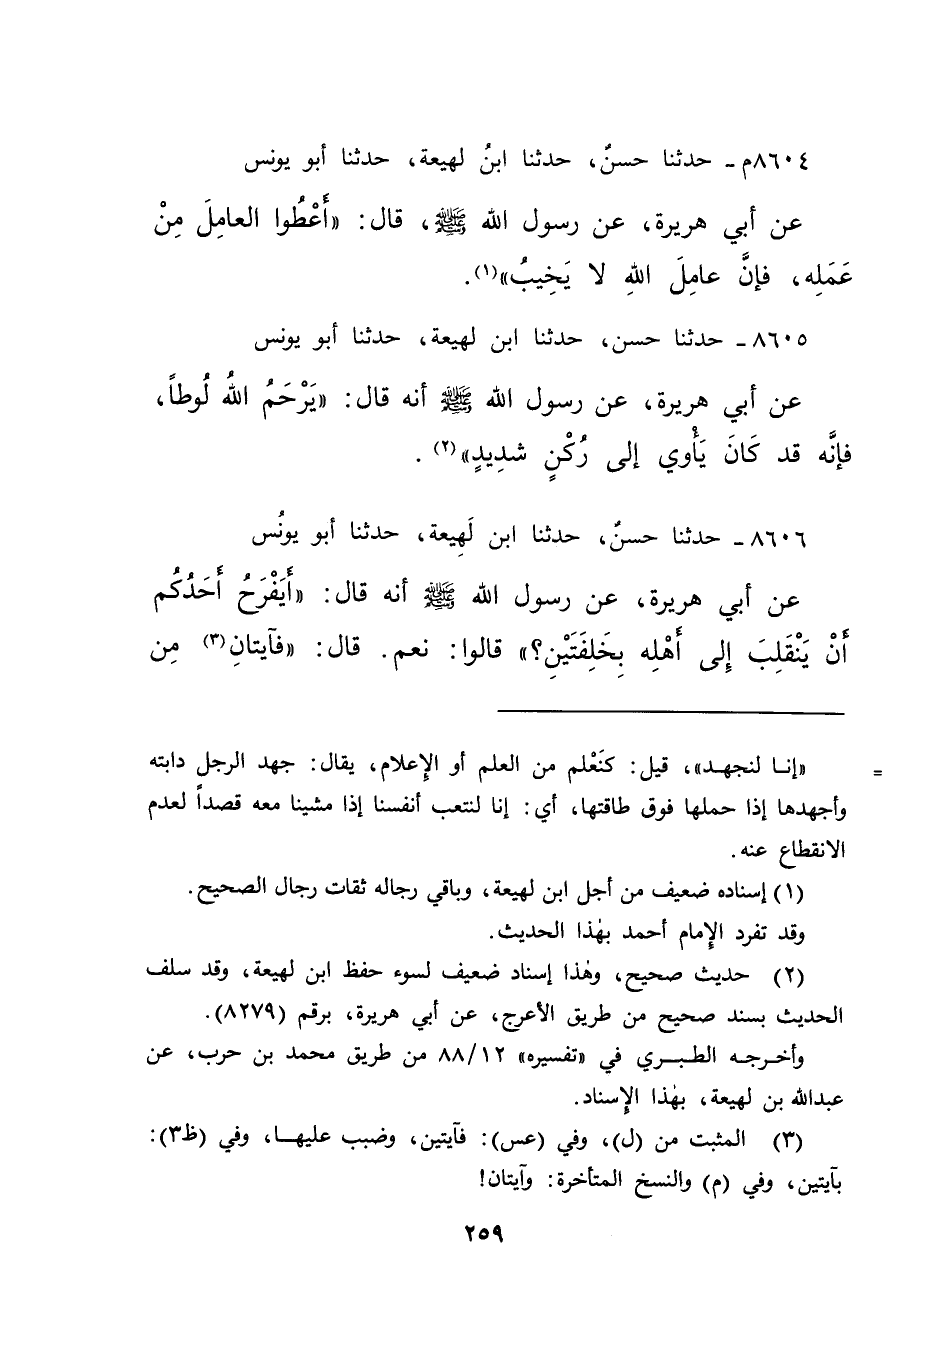 ٨٦٠٤م ـ حدثنا حسنٌ، حدثنا ابنُ لهيعة، حدثنا أبو يونس
عن أبي هريرة، عن رسول الله ﷺ، قال: «أَعْطُوا العامِلَ مِنْ
عَمَلِه، فإنَّ عامِلَ اللهِ لا يَخِيبُ»(١).
٨٦٠٥ ـ حدثنا حسن، حدثنا ابن لهيعة، حدثنا أبو يونس
عن أبي هريرة، عن رسول الله ﷺ أنه قال: «يَرْحَمُ اللهُ لُوطاً،
فإنَّه قد كَانَ يَأْوي إلى رُكْنٍ شديدٍ»(٢).
٨٦٠٦ ـ حدثنا حسنٌ، حدثنا ابن لَهِيعة، حدثنا أبو يونُس
عن أبي هريرة، عن رسول الله ﷺ أنه قال: «أَيَفْرَحُ أَحَدُكُم
أَنْ يَنْقَلِبَ إِلى أَهْلِه بِخَلِفَتَيْنِ؟» قالوا: نعم. قال: «فآيتانِ(٣) مِن
= «إنا لنجهد»، قيل: كنَعْلم من العلم أو الإعلام، يقال: جهد الرجل دابته
وأجهدها إذا حملها فوق طاقتها، أي: إنا لنتعب أنفسنا إذا مشينا معه قصداً لعدم
الانقطاع عنه.
(١) إسناده ضعيف من أجل ابن لهيعة، وباقي رجاله ثقات رجال الصحيح.
وقد تفرد الإمام أحمد بهٰذا الحديث.
(٢) حديث صحيح، وهٰذا إسناد ضعيف لسوء حفظ ابن لهيعة، وقد سلف
الحديث بسند صحيح من طريق الأعرج، عن أبي هريرة، برقم (٨٢٧٩).
وأخرجه الطبري في «تفسيره» ٨٨/١٢ من طريق محمد بن حرب، عن
عبدالله بن لهيعة، بهٰذا الإسناد.
(٣) المثبت من (ل)، وفي (عس): فآيتين، وضبب عليها، وفي (ظ٣):
بآيتين، وفي (م) والنسخ المتأخرة: وآيتان!
٢٥٩